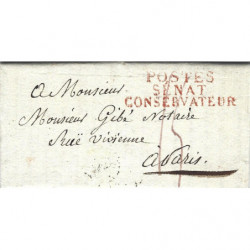 POSTES
SÉNAT
CONSERVATEUR
A Monsieur
Monsieur Gibé Notaire
Ruë Vivienne
à Paris.